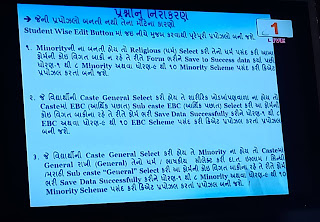 પ્રશ્નનું નિરાકરણ
➢ જેની પ્રપોઝલો બનતી નથી તેના માટેના કારણો
1
Student Wise Edit Button માં જઇ નીચે મુજબ કરવાથી પૂરેપૂરી પ્રપોઝલો બની જશે.
૧. Minorityની ના બનતી હોય તો Religious (ધર્મ) Select કરી તેનો ધર્મ પસંદ કરી આખા
ફોર્મની કોઇ વિગત બાકી ન રહે તે રીતે Form ભરીને Save to Success data કર્યા પછી
ધોરણ-૧ થી ૮ Minority અથવા ધોરણ-૯ થી ૧૦ Minority Scheme પસંદ કરી ક્રિએટ
પ્રપોઝલ કરતાં બની જશે.
૨. જે વિદ્યાર્થીની Caste General Select કરી હોય તે શારીરિક ખોડખાંપણવાળા ના હોય તો
Casteમાં EBC (આર્થિક પછાત) Sub caste EBC (આર્થિક પછાત) Select કરી આ ફોર્મની
કોઇ વિગત બાકી ના રહે તે રીતે ફોર્મ ભરી Save Data Successfully કરીને ધોરણ-૧ થી
૮ EBC અથવા ધોરણ-૯ થી ૧૦ EBC Scheme પસંદ કરી ક્રિએટ પ્રપોઝલ કરતાં પ્રપોઝલ
બની જશે.
૩. જે વિદ્યાર્થીની Caste General Select કરી હોય તે Minority ના હોય તો Casteમાં
General રાખી (General) તેનો ધર્મ / ભાષાકીય સીલેક્ટ કરી દા.ત. ઇસ્લામ / હિન્દી
/મરાઠી Sub caste "General" Select કરી આ ફોર્મની કોઇ વિગત બાકી ના રહે તે રીતે ફોર્મ
ભરી Save Data Successfully કરીને ધોરણ-૧ થી ૮ Minority અથવા ધોરણ-૯ થી ૧૦
Minority Scheme પસંદ કરી ક્રિએટ પ્રપોઝલ કરતાં પ્રપોઝલ બની જશે.